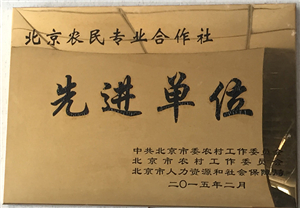 北京农民专业合作社
先进单位
中共北京市委农村工作委员会
北京市农村工作委员会
北京市人力资源和社会保障局
二〇一五年二月